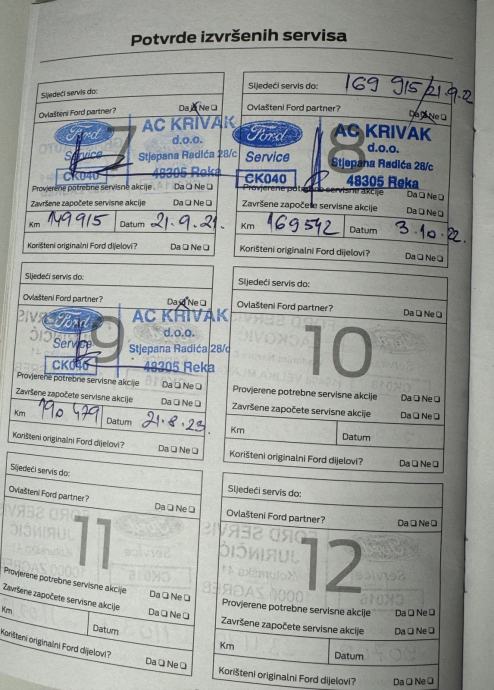 Potvrde izvršenih servisa
Sljedeći servis do:
Ovlašteni Ford partner? Da Ne
7
Ford
Service
CK040
AC KRIVAK
d.o.o.
Stjepana Radića 28/c
48305 Reka
Provjerene potrebne servisne akcije Da Ne
Završene započete servisne akcije Da Ne
Km 149915 Datum 21.9.21.
Korišteni originalni Ford dijelovi? Da Ne
Sljedeći servis do: 169 915/21.9.22
Ovlašteni Ford partner? Da Ne
8
Ford
Service
CK040
AC KRIVAK
d.o.o.
Stjepana Radića 28/c
48305 Reka
Provjerene potrebne servisne akcije Da Ne
Završene započete servisne akcije Da Ne
Km 169542 Datum 3.10.22.
Korišteni originalni Ford dijelovi? Da Ne
Sljedeći servis do:
Ovlašteni Ford partner? Da Ne
9
Ford
Service
CK040
AC KRIVAK
d.o.o.
Stjepana Radića 28/c
48305 Reka
Provjerene potrebne servisne akcije Da Ne
Završene započete servisne akcije Da Ne
Km 190 479 Datum 21.8.23.
Korišteni originalni Ford dijelovi? Da Ne
Sljedeći servis do:
Ovlašteni Ford partner? Da Ne
10
Provjerene potrebne servisne akcije Da Ne
Završene započete servisne akcije Da Ne
Km Datum
Korišteni originalni Ford dijelovi? Da Ne
Sljedeći servis do:
Ovlašteni Ford partner? Da Ne
11
Provjerene potrebne servisne akcije Da Ne
Završene započete servisne akcije Da Ne
Km Datum
Korišteni originalni Ford dijelovi? Da Ne
Sljedeći servis do:
Ovlašteni Ford partner? Da Ne
12
Provjerene potrebne servisne akcije Da Ne
Završene započete servisne akcije Da Ne
Km Datum
Korišteni originalni Ford dijelovi? Da Ne